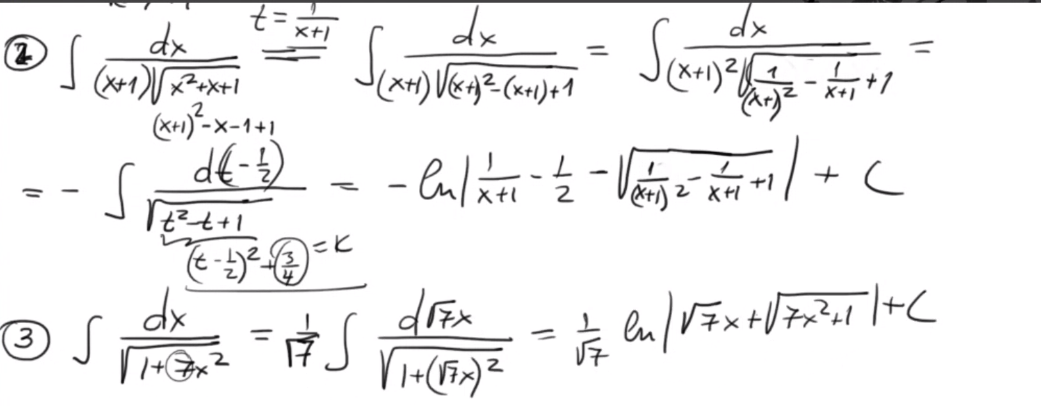 ② ∫ dx/((x+1)√(x²+x+1)) =(t = 1/(x+1))= ∫ dx/((x+1)√((x+1)²-(x+1)+1)) = ∫ dx/((x+1)²√(1/(x+1)² - 1/(x+1) + 1)) =
(x+1)²-x-1+1
= - ∫ d(t-1/2)/√(t²-t+1) = - ln|1/(x+1) - 1/2 - √(1/(x+1)² - 1/(x+1) + 1)| + C
(t-1/2)²+3/4 = K
③ ∫ dx/√(1+7x²) = 1/√7 ∫ d√7x/√(1+(√7x)²) = 1/√7 ln|√7x+√(7x²+1)|+C